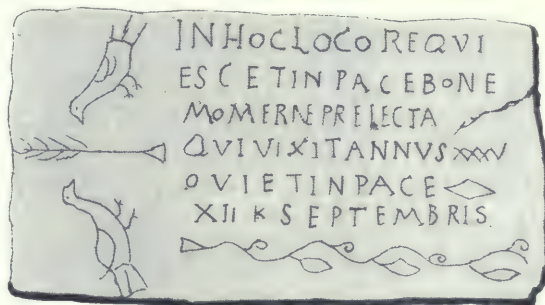 INHOCLOCOREQVI
ESCETINPACEBONE
MOMERNEPRELECTA
QVIVIXITANNVS XXXV
OVIETINPACE
XII K SEPTEMBRIS